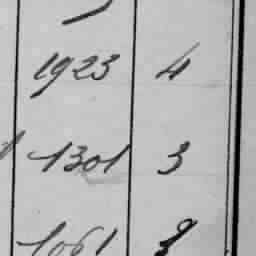 1923 4
1301 3
1061 8